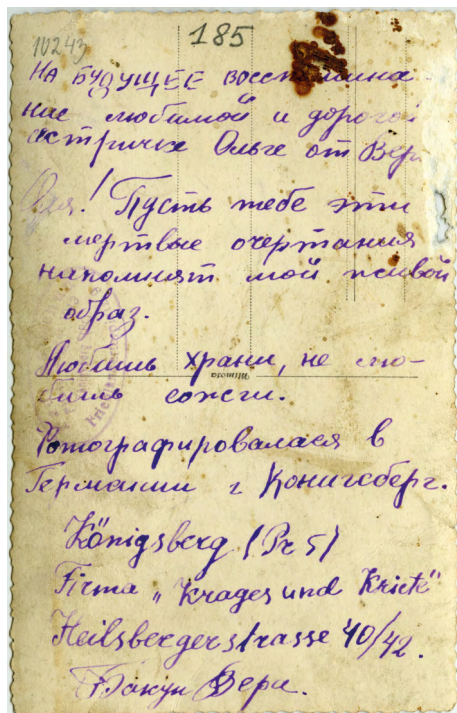 10243
185
НА БУДУЩЕЕ воспомина-
ние любимой и дорогой
сестричке Ольге от Веры
Оля! Пусть тебе эти
мертвые очертания
напомнят мой живой
образ.
Любишь храни, не лю-
бишь сожги.
Фотографировалася в
Германии г Конигсберг.
Königsberg (Pr 5)
Firma „Krages und Kriete“
Heilsbergerstrasse 40/42.
Бакун Вера.